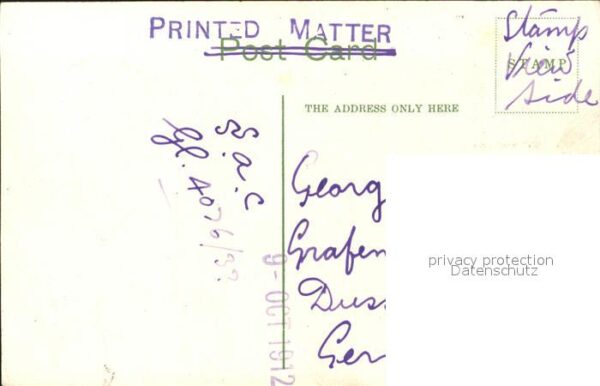 PRINTED MATTER
Post Card
STAMP
Stamp
View
side
THE ADDRESS ONLY HERE
S.a.C
Gl. 4076/33
Georg
Grafen
Duss
Ger
9-OCT 1912
privacy protection
Datenschutz